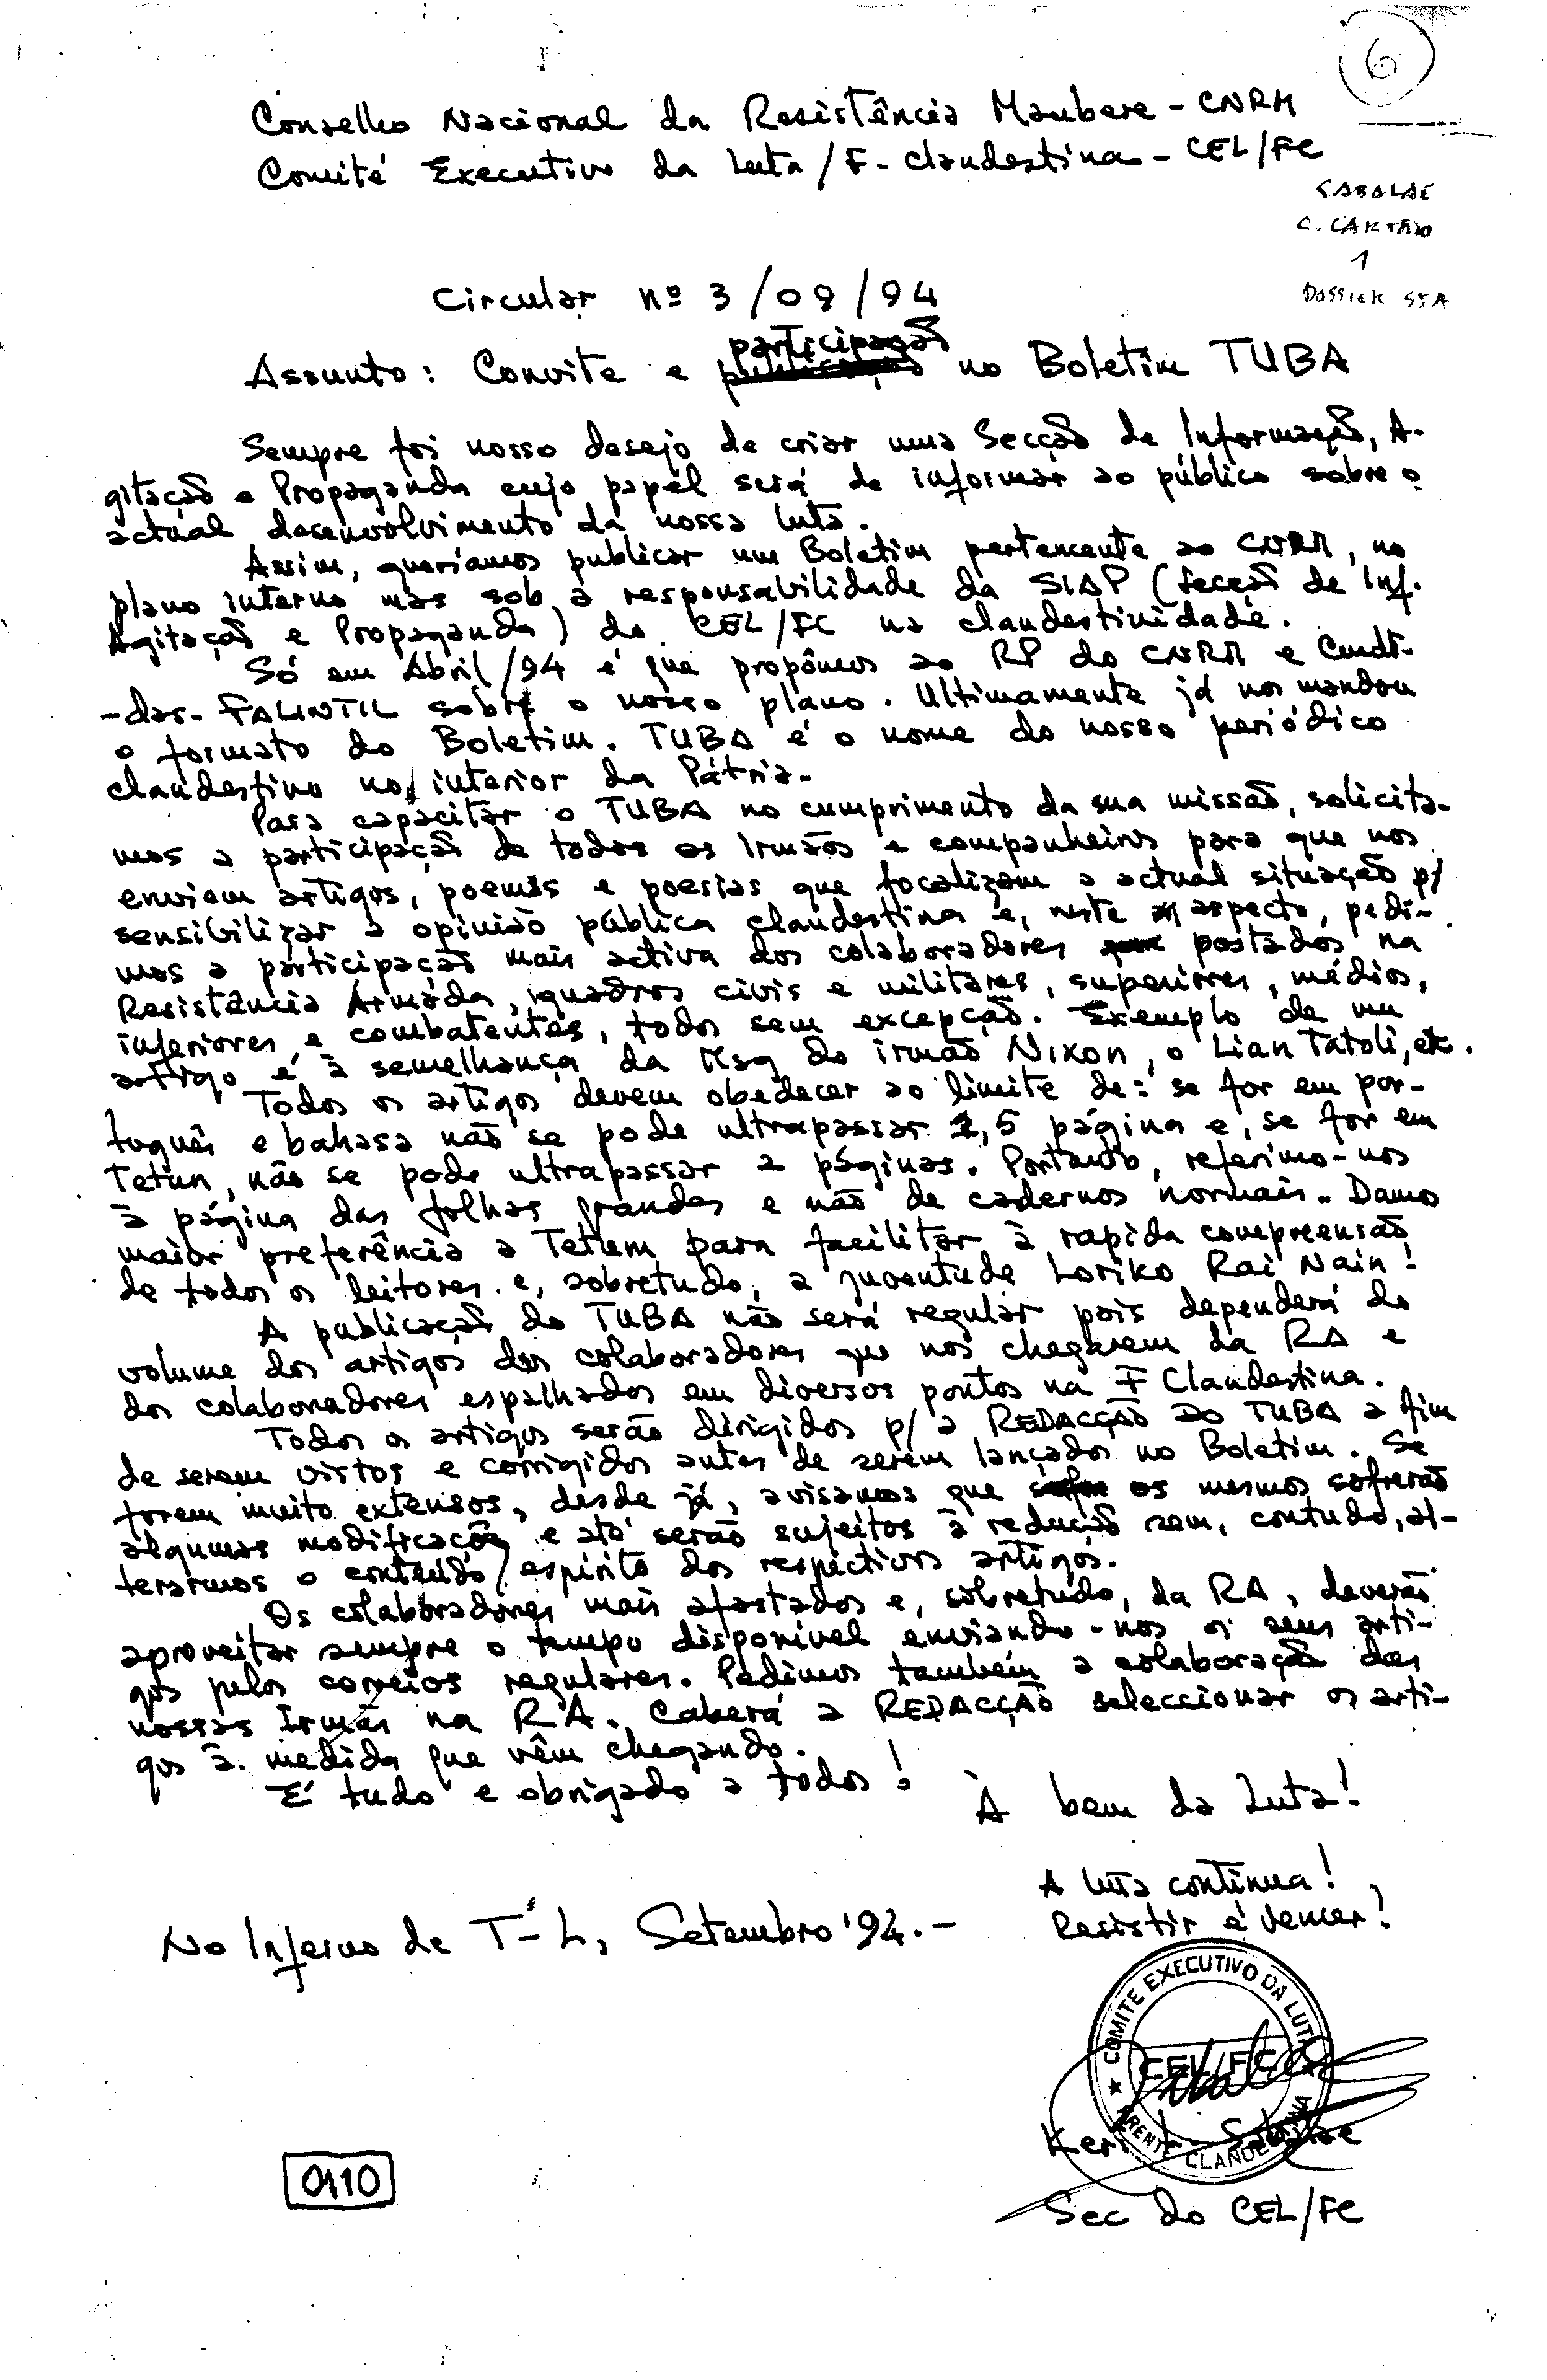 6
Conselho Nacional da Resistência Maubere - CNRM
Comité Executivo da Luta / F. Clandestina - CEL/FC
SABALAE
C. CARTÃO
1
DOSSIER SSA
Circular nº 3/09/94
participação
Assunto: Convite e publicação no Boletim TUBA
Sempre foi nosso desejo de criar uma Secção de Informação, A-
gitação e Propaganda cujo papel será de informar ao público sobre o
actual desenvolvimento da nossa luta.
Assim, queríamos publicar um Boletim pertencente ao CNRM, no
plano interno mas sob a responsabilidade da SIAP (Secção de Inf.
Agitação e Propaganda) do CEL/FC na clandestinidade.
Só em Abril/94 é que propômos ao RP do CNRM e Cmdt-
-das- FALINTIL sobre o nosso plano. Ultimamente já nos mandou
o formato do Boletim. TUBA é o nome do nosso periódico
clandestino no interior da Pátria.
Para capacitar o TUBA no cumprimento da sua missão, solicita-
mos a participação de todos os Irmãos e companheiros para que nos
enviem artigos, poemas e poesias que focalizam a actual situação p/
sensibilizar a opinião pública clandestina e, neste aspecto, pedi-
mos a participação mais activa dos colaboradores postados na
Resistência Armada, quadros civis e militares, superiores, médios,
inferiores e combatentes, todos sem excepção. Exemplo de um
artigo é à semelhança da Msg do irmão Nixon, o Lian Tatoli, etc.
Todos os artigos devem obedecer ao limite de: se for em por-
tuguês e bahasa não se pode ultrapassar 1,5 página e, se for em
Tetun, não se pode ultrapassar 2 páginas. Portanto, referimo-nos
à página das folhas grandes e não de cadernos normais. Damo
maior preferência a Tetum para facilitar à rapida compreensão
de todos os leitores e, sobretudo, a juventude Loriko Rai Nain!
A publicação do TUBA não será regular pois dependerá do
volume dos artigos dos colaboradores que nos chegarem da RA e
dos colaboradores espalhados em diversos pontos na F Clandestina.
Todos os artigos serão dirigidos p/ a REDACÇÃO DO TUBA a fim
de serem vistos e corrigidos antes de serem lançados no Boletim. Se
forem muito extensos, desde já, avisamos que os mesmos sofrerão
algumas modificações e até serão sujeitos à redução sem, contudo, al-
terarmos o conteúdo/espírito dos respectivos artigos.
Os colaboradores mais afastados e, sobretudo, da RA, deverão
aproveitar sempre o tempo disponível enviando-nos os seus arti-
gos pelos correios regulares. Pedimos também a colaboração das
nossas Irmãs na RA. Caberá a REDACÇÃO seleccionar os arti-
gos à medida que vêm chegando.
É tudo e obrigado a todos!
À bem da Luta!
A luta continua!
Resistir é Vencer!
No Inferno de T-L, Setembro '94.-
COMITE EXECUTIVO DA LUTA
CEL/FC
FRENTE CLANDESTINA
Sabalae
Sec do CEL/FC
0110